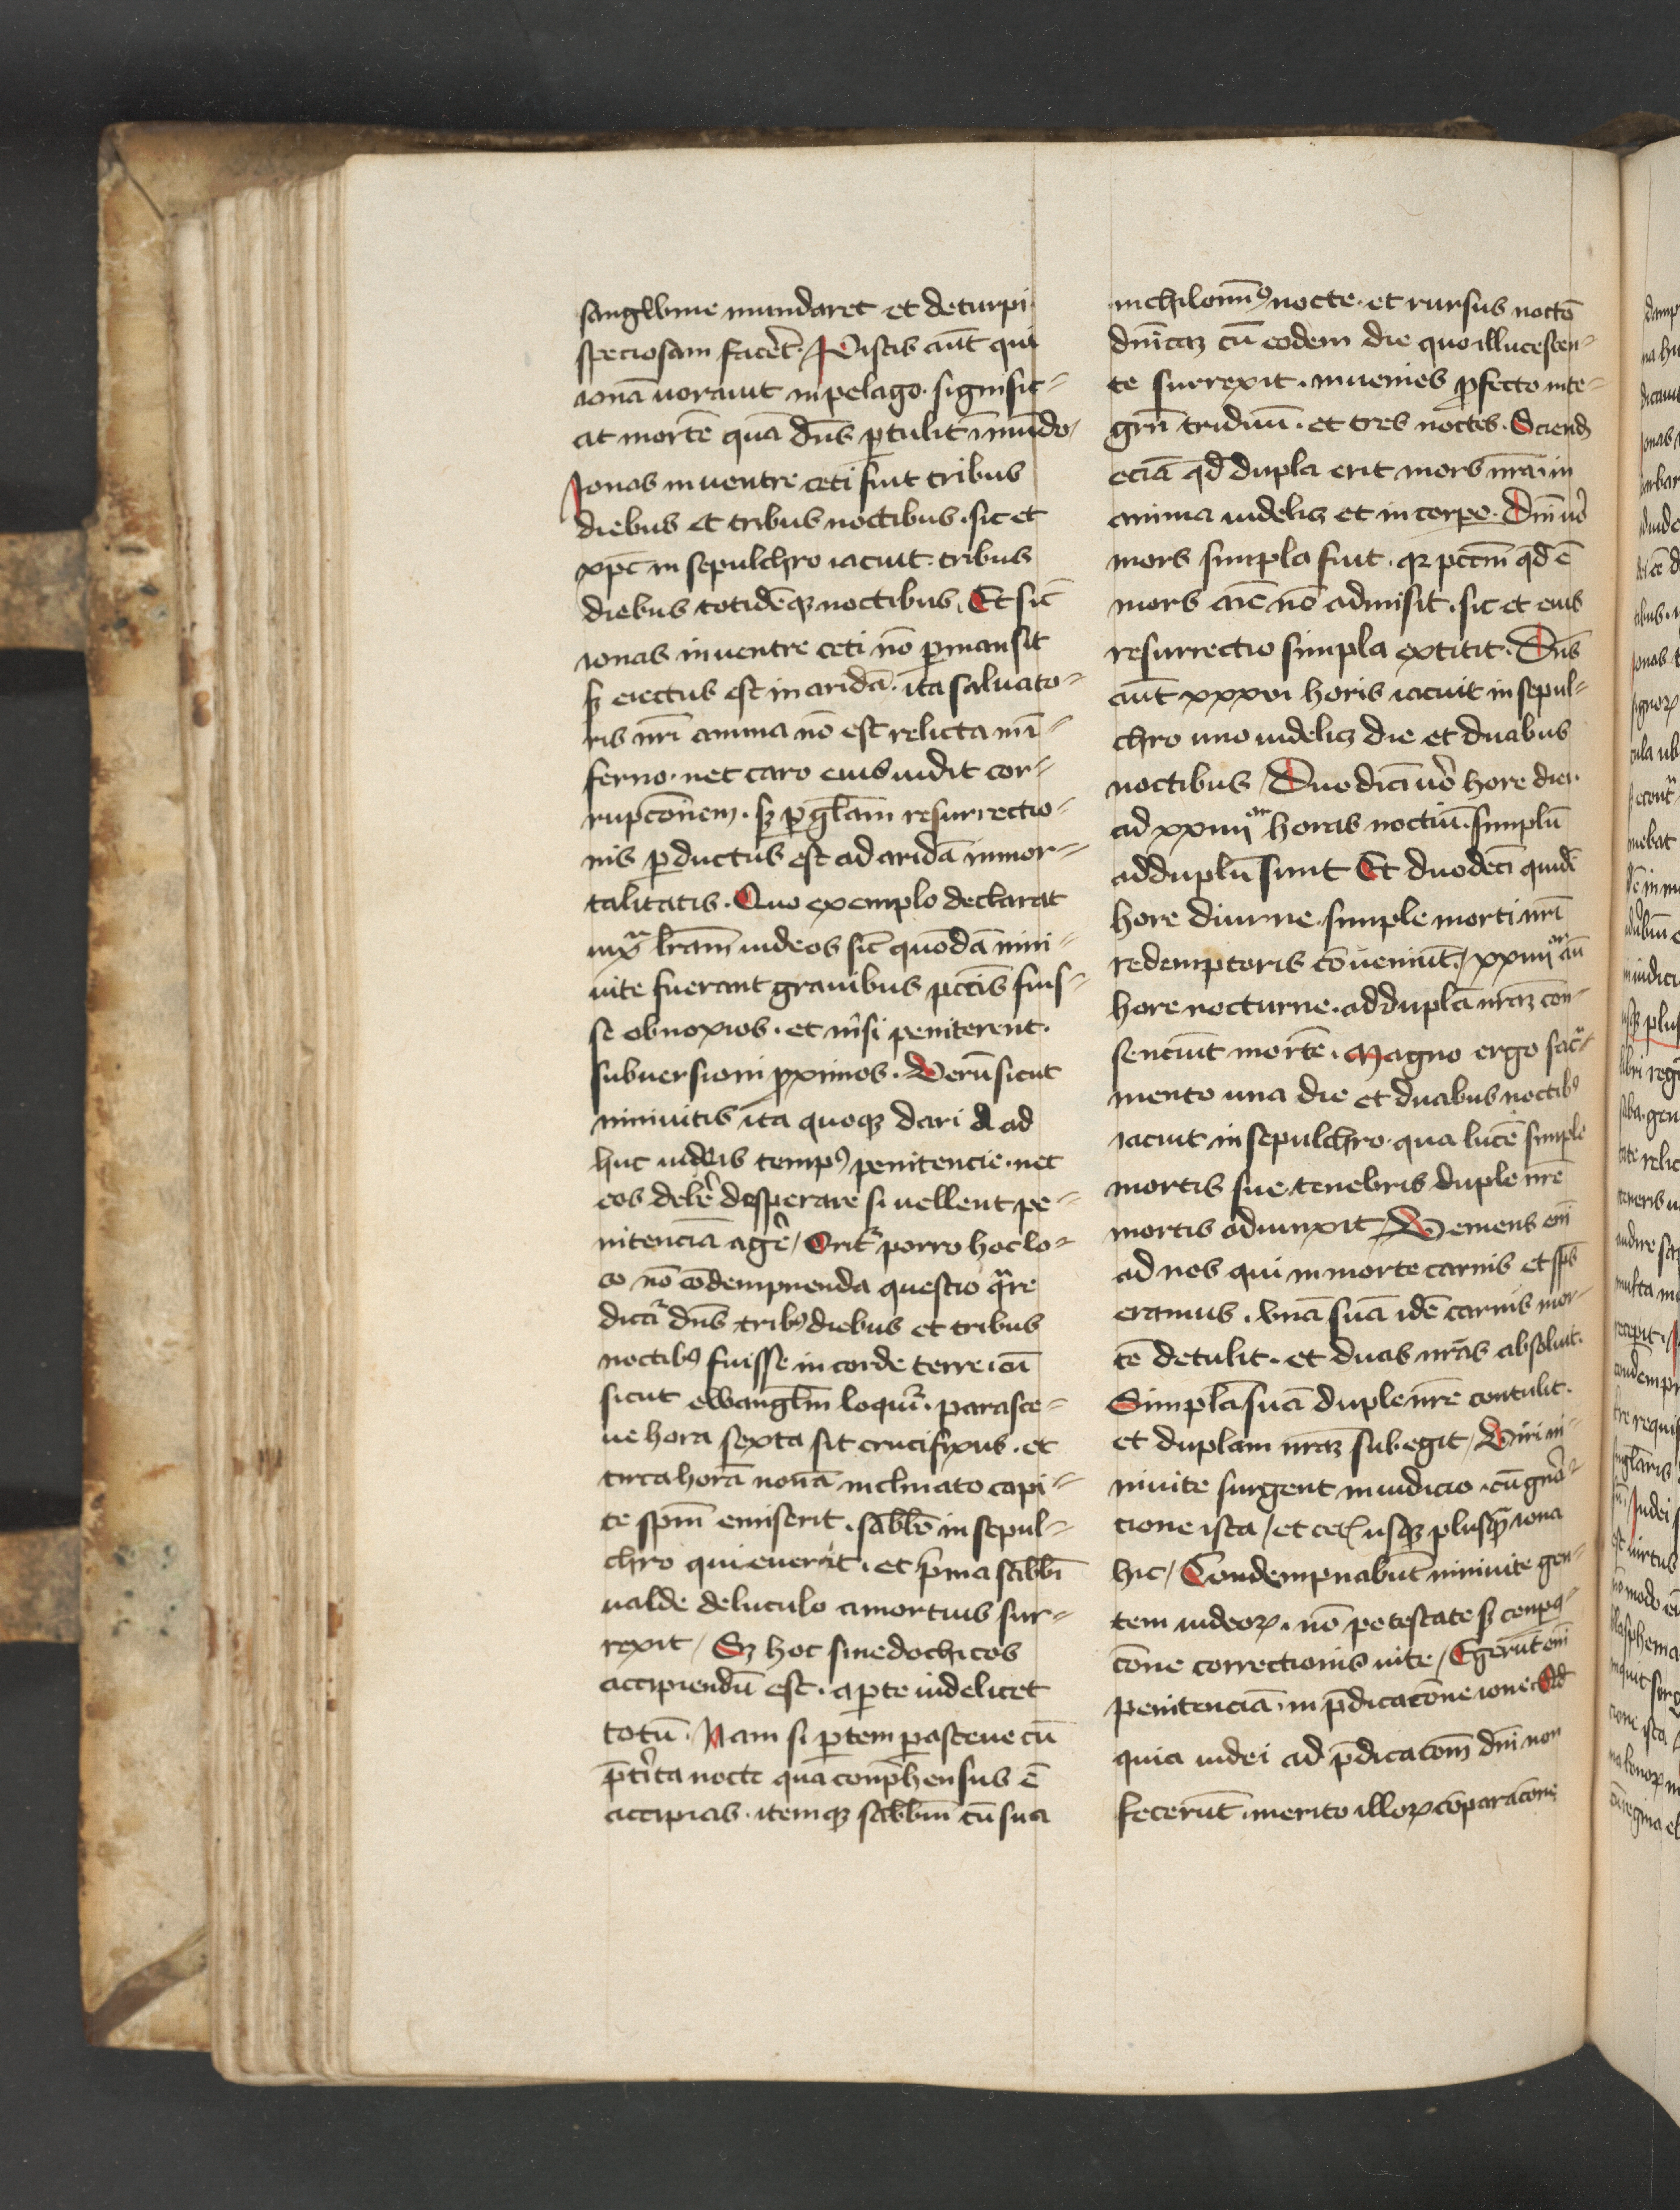 sangwine mundaret et deturpi
speciosam facēt. Piscis aūt qui
ionā uorauit in pelago. signific⸗
at mortē quā dn̄s ꝑtulit ī mundo.
Jonas in uentre ceti fuit tribus
diebus et tribus noctibus. sic et
xp̄c in sepulchro iacuit. tribus
diebus totidēqꝫ noctibus. Et sic̄
ionas in uentre ceti nō ꝑmansit
sꝫ eiectus est in aridā. ita saluato⸗
ris nr̄i anima nō est relicta in ī⸗
ferno. nec caro eius uidit cor⸗
rupcōnem. sꝫ ꝑ gl̄iam resurrectio⸗
nis ꝑductus est ad aridā inmor⸗
talitatis. Quo exemplo declarat
iuxͣ lr̄am iudeos sic̄ quōdā nini⸗
uite fuerant grauibus pctīs fuis⸗
se obnoxios. et nisi peniterent.
subuersioni ꝓximos. Verū sicut
niniuitis ita quoqꝫ dari d ad
huc iudeis tempꝰ penitencie. nec
eos debē̄ desperare si uellent pe⸗
nitenciā agē̄ / Orit̉ porro hoc lo⸗
co nō cōdempnenda questio qͣre
dicat̉ dn̄s tribꝰ diebus et tribus
noctibꝰ fuisse in corde terre. cū
sicut ewangl̄m loquit̉. parasce⸗
ue hora sexta sit crucifixus. et
circa horā nonā inclinato capi⸗
te spm̄ emiserit. sabb̄o in sepul⸗
chro quieuerit. et p̄ma sabb̄i
ualde deluculo a mortuis sur⸗
rexit / Sꝫ hoc sinedochicos
accipiendū est. a ꝑte uidelicet
totū. Nam si ꝑtem ꝑasceue cū
p̄tīta nocte qua conp̄hensus ē
accipias. itemqꝫ sabb̄m cū sua
nichilomīꝰ nocte. et rursus noctē
dn̄icaꝫ cū eodem die quo illucescen⸗
te surrexit. inuenies ꝓfecto inte⸗
grū triduū. et tres noctes. Sciendꝫ
eciā qd̄ dupla erit mors nr̄a. in
anima uidelicꝫ et in corpe. Dn̄i uͦ
mors simpla fuit. qꝛ pctm̄ qd̄ ē
mors aīe nō admisit. sic et eius
resurrectio simpla extitit. Dn̄s
aūt xxxvi horis iacuit in sepul⸗
chro uno uidelicꝫ die et duabus
noctibus / Duodecī uͦ hore diei.
ad xxiiii or horas noctiū. simplū
ad duplū sunt Et duodecī quidē
hore diurne. simple morti nr̄i
redemptoris cōueniūt. / xxiiii or aūt
hore nocturne. ad duplā nr̄aꝫ con⸗
senciūt mortē. Magno ergo sacͣ⸗
mento una die et duabus noctibꝰ
iacuit in sepulchro. qua lucē simple
mortis sue. tenebris duple nr̄e
mortis adiunxit / Veniens em̄
ad nos qui in morte carnis et sp̄s
eramus. vnā suā idē carnis mor⸗
tē detulit. et duas nr̄as absoluit.
Simplā suā duple nr̄e contulit.
et duplam nr̄aꝫ subegit / Viri ni⸗
niuite surgent in iudicio. cū gnͣ⸗
cione ista / et cetꝭ usqꝫ plusqͣ iona
hic / Condempnabūt niniuite gen⸗
tem iudeoꝝ. nō potestate sꝫ conpͣ⸗
cōne correctionis uite / Egerūt em̄
penitenciā. in p̄dicatōne ione. Et
quia iudei ad p̄dicatōm dn̄i non
fecerūt. merito illoꝝ cōparacōne